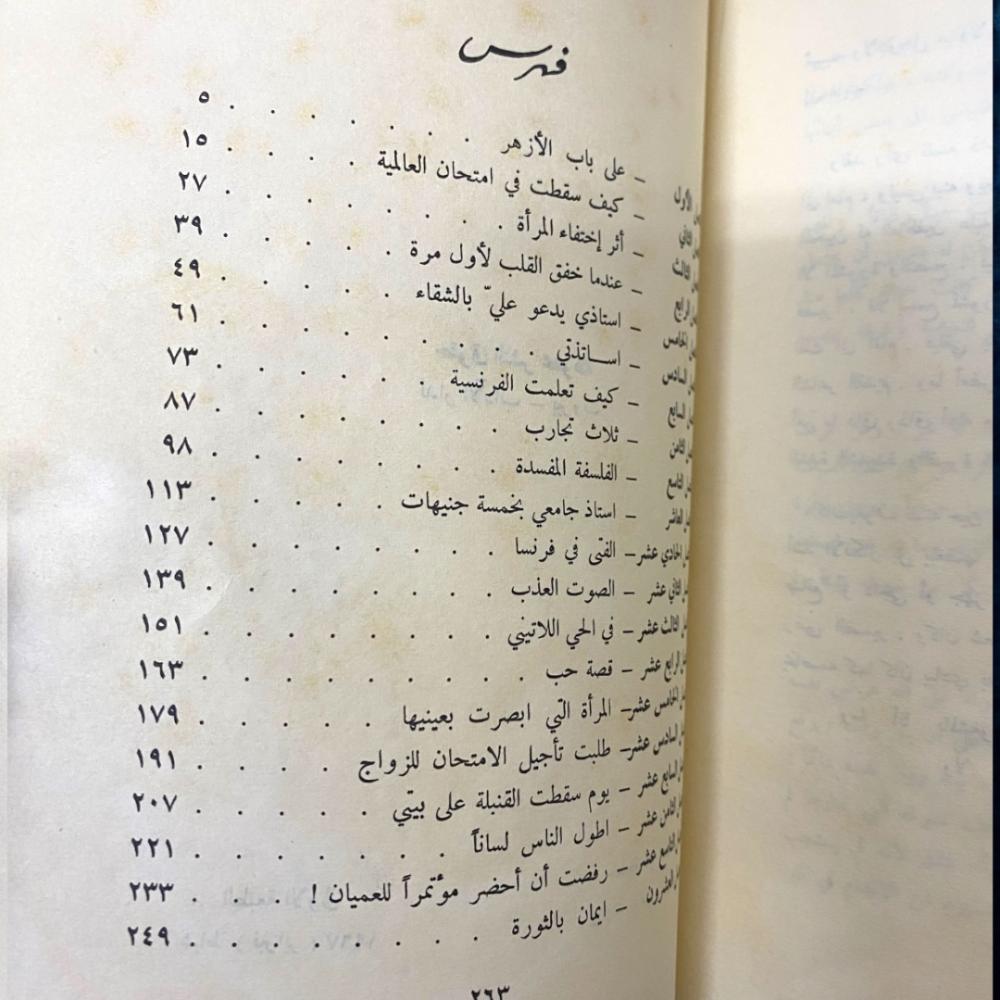 فهرس
الأول – على باب الأزهر . . . . . . . ٥
الثاني – كيف سقطت في امتحان العالمية . . . . ١٥
الثالث – أثر إختفاء المرأة . . . . . . . ٢٧
الرابع – عندما خفق القلب لأول مرة . . . . ٣٩
الخامس – استاذي يدعو عليّ بالشقاء . . . . ٤٩
السادس – اســاتذتي . . . . . . . ٦١
السابع – كيف تعلمت الفرنسية . . . . . ٧٣
الثامن – ثلاث تجارب . . . . . . . ٨٧
التاسع – الفلسفة المفسدة . . . . . . . ٩٨
العاشر – استاذ جامعي بخمسة جنيهات . . . . ١١٣
الحادي عشر – الفتى في فرنسا . . . . . . . ١٢٧
الثاني عشر – الصوت العذب . . . . . . . ١٣٩
الثالث عشر – في الحي اللاتيني . . . . . . . ١٥١
الرابع عشر – قصة حب . . . . . . . ١٦٣
الخامس عشر – المرأة التي ابصرت بعينيها . . . . ١٧٩
السادس عشر – طلبت تأجيل الامتحان للزواج . . . . ١٩١
السابع عشر – يوم سقطت القنبلة على بيتي . . . . ٢٠٧
الثامن عشر – اطول الناس لساناً . . . . . . ٢٢١
التاسع عشر – رفضت أن أحضر مؤتمراً للعميان ! . . . . ٢٣٣
العشرون – ايمان بالثورة . . . . . . . ٢٤٩
٢٦٣